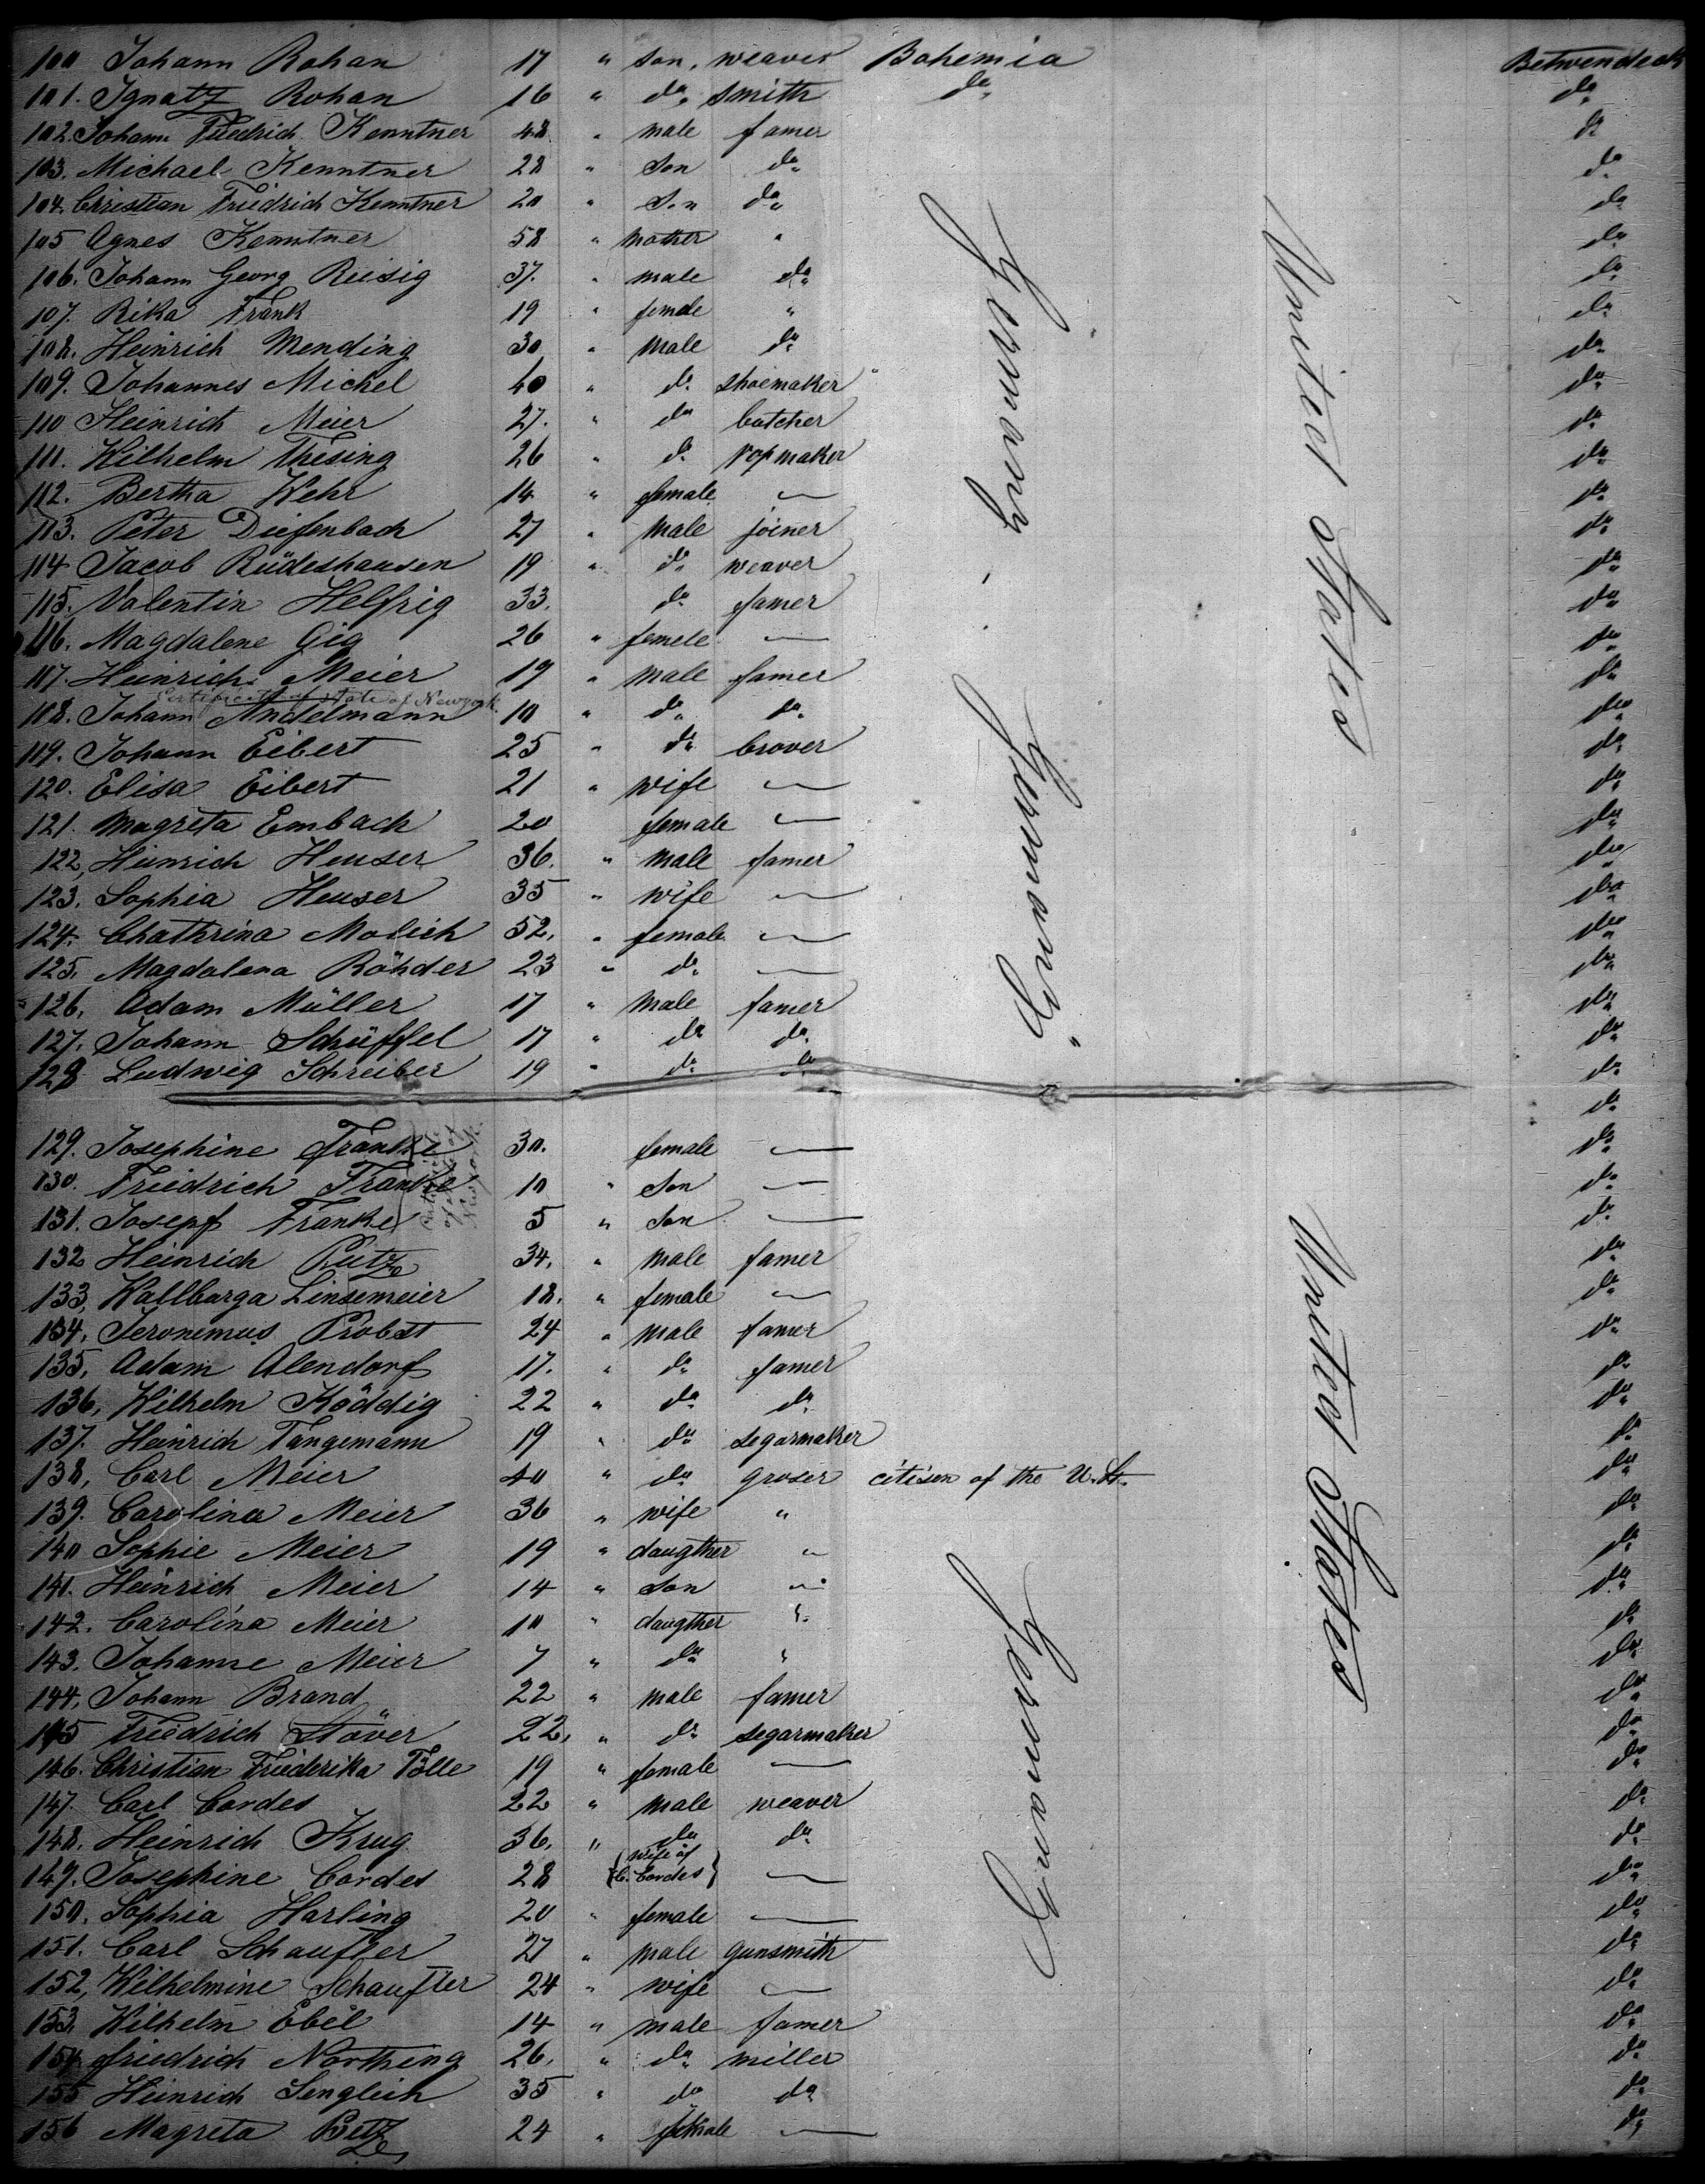 100 Johann Rohan 17 " son, weaver Bohemia Betwendeck
101. Ignatz Rohan 16 " do. smith do. do.
102. Johann Friedrich Kenntner 48 " male famer do.
103. Michael Kenntner 28 " son do. do.
104. Christian Friedrich Kenntner 20 " son do. do.
105 Agnes Kenntner 58 " mother " do.
106. Johann Georg Reisig 37. " male do. do.
107. Rika Frank 19 " female " do.
108. Heinrich Mending 30 " male do. do.
109. Johannes Michel 40 " do. shoemaker " do.
110 Heinrich Meier 27. " do. butcher do.
111. Wilhelm Thesing 26 " do. ropmaker do.
112. Bertha Wehr 14 " female — do.
113. Peter Diefenbach 27 " male joiner do.
114 Jacob Rüdeshausen 19 " do. weaver do.
115. Valentin Helfrig 33. do. famer do.
116. Magdalene Gig 26 " femele — do.
117. Heinrich Meier 19 " male famer do.
Certificate of state of Newyork.
118. Johann Andelmann 10 " do. do. do.
119. Johann Eibert 25 " do. brover do.
120. Elisa Eibert 21 " wife — do.
121. Magreta Embach 20 female — do.
122, Heinrich Heuser 36. " male famer do.
123. Sophia Heuser 35 " wife — do.
124. Chathrina Molich 52, " female — do.
125. Magdalena Röhder 23 " do. — do.
126, Adam Müller 17 " male famer do.
127. Johann Schüffel 17 " do. do. do.
128 Ludwig Schreiber 19 " do. do. do.
do.
Germany Germany
United States
129. Josephine Franke 30. female — do.
130. Friedrich Franke 10 " son — do.
131. Josepf Franke 5 " son — do.
Certificate of state of Newyork.
132 Heinrich Putze 34, " male famer do.
133, Wallburga Linsemeier 18. " female — do.
134, Jeronemus Probst 24 " male famer do.
135, Adam Alendorf 17. " do. famer do.
136, Wilhelm Köddig 22 " do. do. do.
137. Heinrich Tangemann 19 " do. segarmaker do.
138, Carl Meier 40 " do. groser citisen of the U. St. do.
139. Carolina Meier 36 " wife " do.
140 Sophie Meier 19 " daugther " do.
141. Heinrich Meier 14 " son " do.
142. Carolina Meier 10 " daugther " do.
143. Johanne Meier 7 " do. " do.
144, Johann Brand 22 " male famer do.
145 Friedrich Stöver 22, " do. segarmaker do.
146. Christian Friederika Tölle 19 " female — do.
147. Carl Cordes 22 " male weaver do.
148. Heinrich Krug 36, " do. do. do.
149. Josephine Cordes 28 {wife of C. Cordes} — do.
150, Sophia Harling 20 " female — do.
151. Carl Schaufler 27 " male gunsmith do.
152, Wilhelmine Schaufler 24 " wife — do.
153, Wilhelm Ebel 14 " male famer do.
154 friedrich Northing 26, " do. miller do.
155 Heinrich Senglein 35 " do. do. do.
156 Magreta Betze 24 " female — do.
Germany
United States